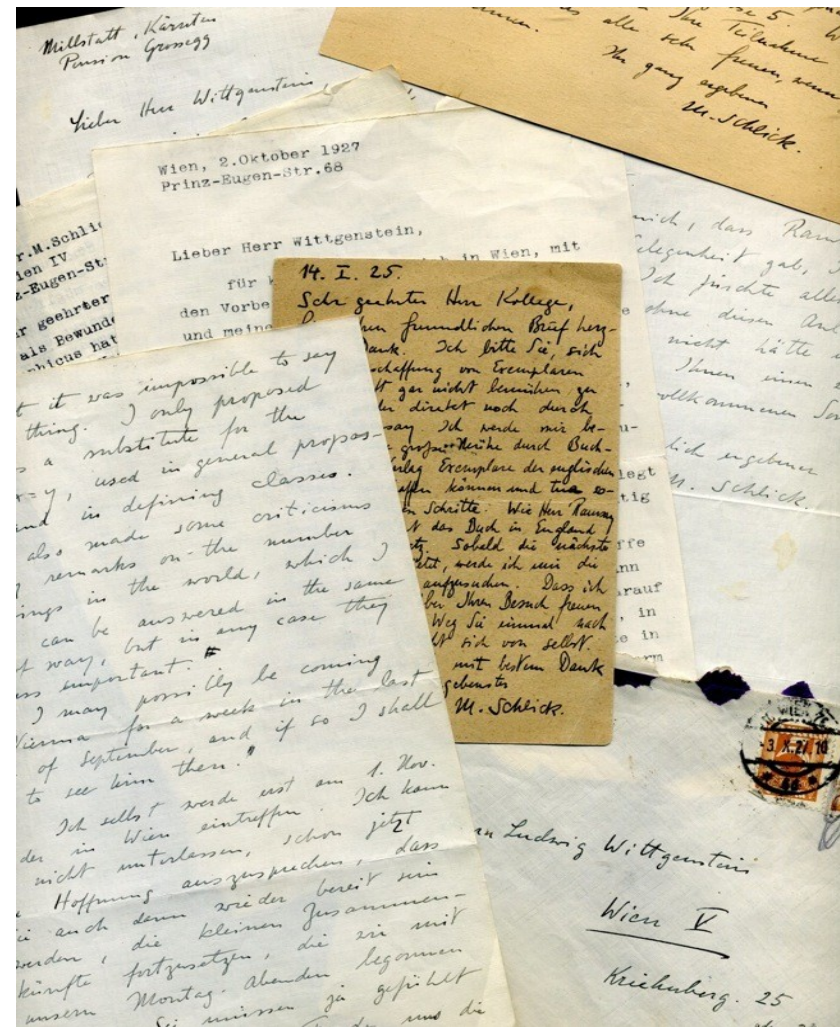 Millstatt, Kärnten
Pension Grossegg
Lieber Herr Wittgenstein,
Ihre Teilnahme
alle sehr freuen, wenn
Ihr ganz ergebener
M. Schlick.
Wien, 2.Oktober 1927
Prinz-Eugen-Str.68
Lieber Herr Wittgenstein,
in Wien, mit
für
den Vorbe
und meine
r.M.Schli
ien IV
z-Eugen-St
r geehrter
als Bewund
phicus hat
mich, dass Ram
elegenheit gab,
Ich fürchte alle
ohne diesen An
nicht hätte
Ihnen einen
vollkommenen
lich ergebener
M. Schlick.
14. I. 25.
Sehr geehrter Herr Kollege,
freundlichen Brief herz-
Dank. Ich bitte Sie, sich
schaffung von Exemplaren
gar nicht bemühen zu
direkt noch durch
say. Ich werde mir be-
grosse Mühe durch Buch-
erlag Exemplare der englischen
affen können und tue so-
n Schritte. Wie Herr Ramsey
t das Buch in England
tz. Sobald die nächste
werde ich mir die
aufzusuchen. Dass ich
ber Ihren Besuch freuen
Weg Sie einmal nach
ht sich von selbst.
mit bestem Dank
gebenster
M. Schlick.
legt
tig
ffe
ann
rauf
in
te in
rm
t it was impossible to say
thing. I only proposed
s a substitute for the
x=y, used in general propos-
and in defining classes.
also made some criticisms
remarks on the number
ings in the world, which I
can be answered in the same
t way, but in any case they
ss important.
I may possibly be coming
Vienna for a week in the last
of September, and if so I shall
to see him then."
Ich selbst werde erst am 1. Nov.
der in Wien eintreffen. Ich kann
nicht unterlassen, schon jetzt
Hoffnung auszusprechen, dass
ie auch dann wieder bereit sein
werden, die kleinen Zusammen-
künfte fortzusetzen, die wir mit
unsern Montag-Abenden begonnen
Sie müssen ja gefühlt
uns die
WIEN
-3.X.27.10
n Ludwig Wittgenstein
Wien V
Kriehuberg. 25